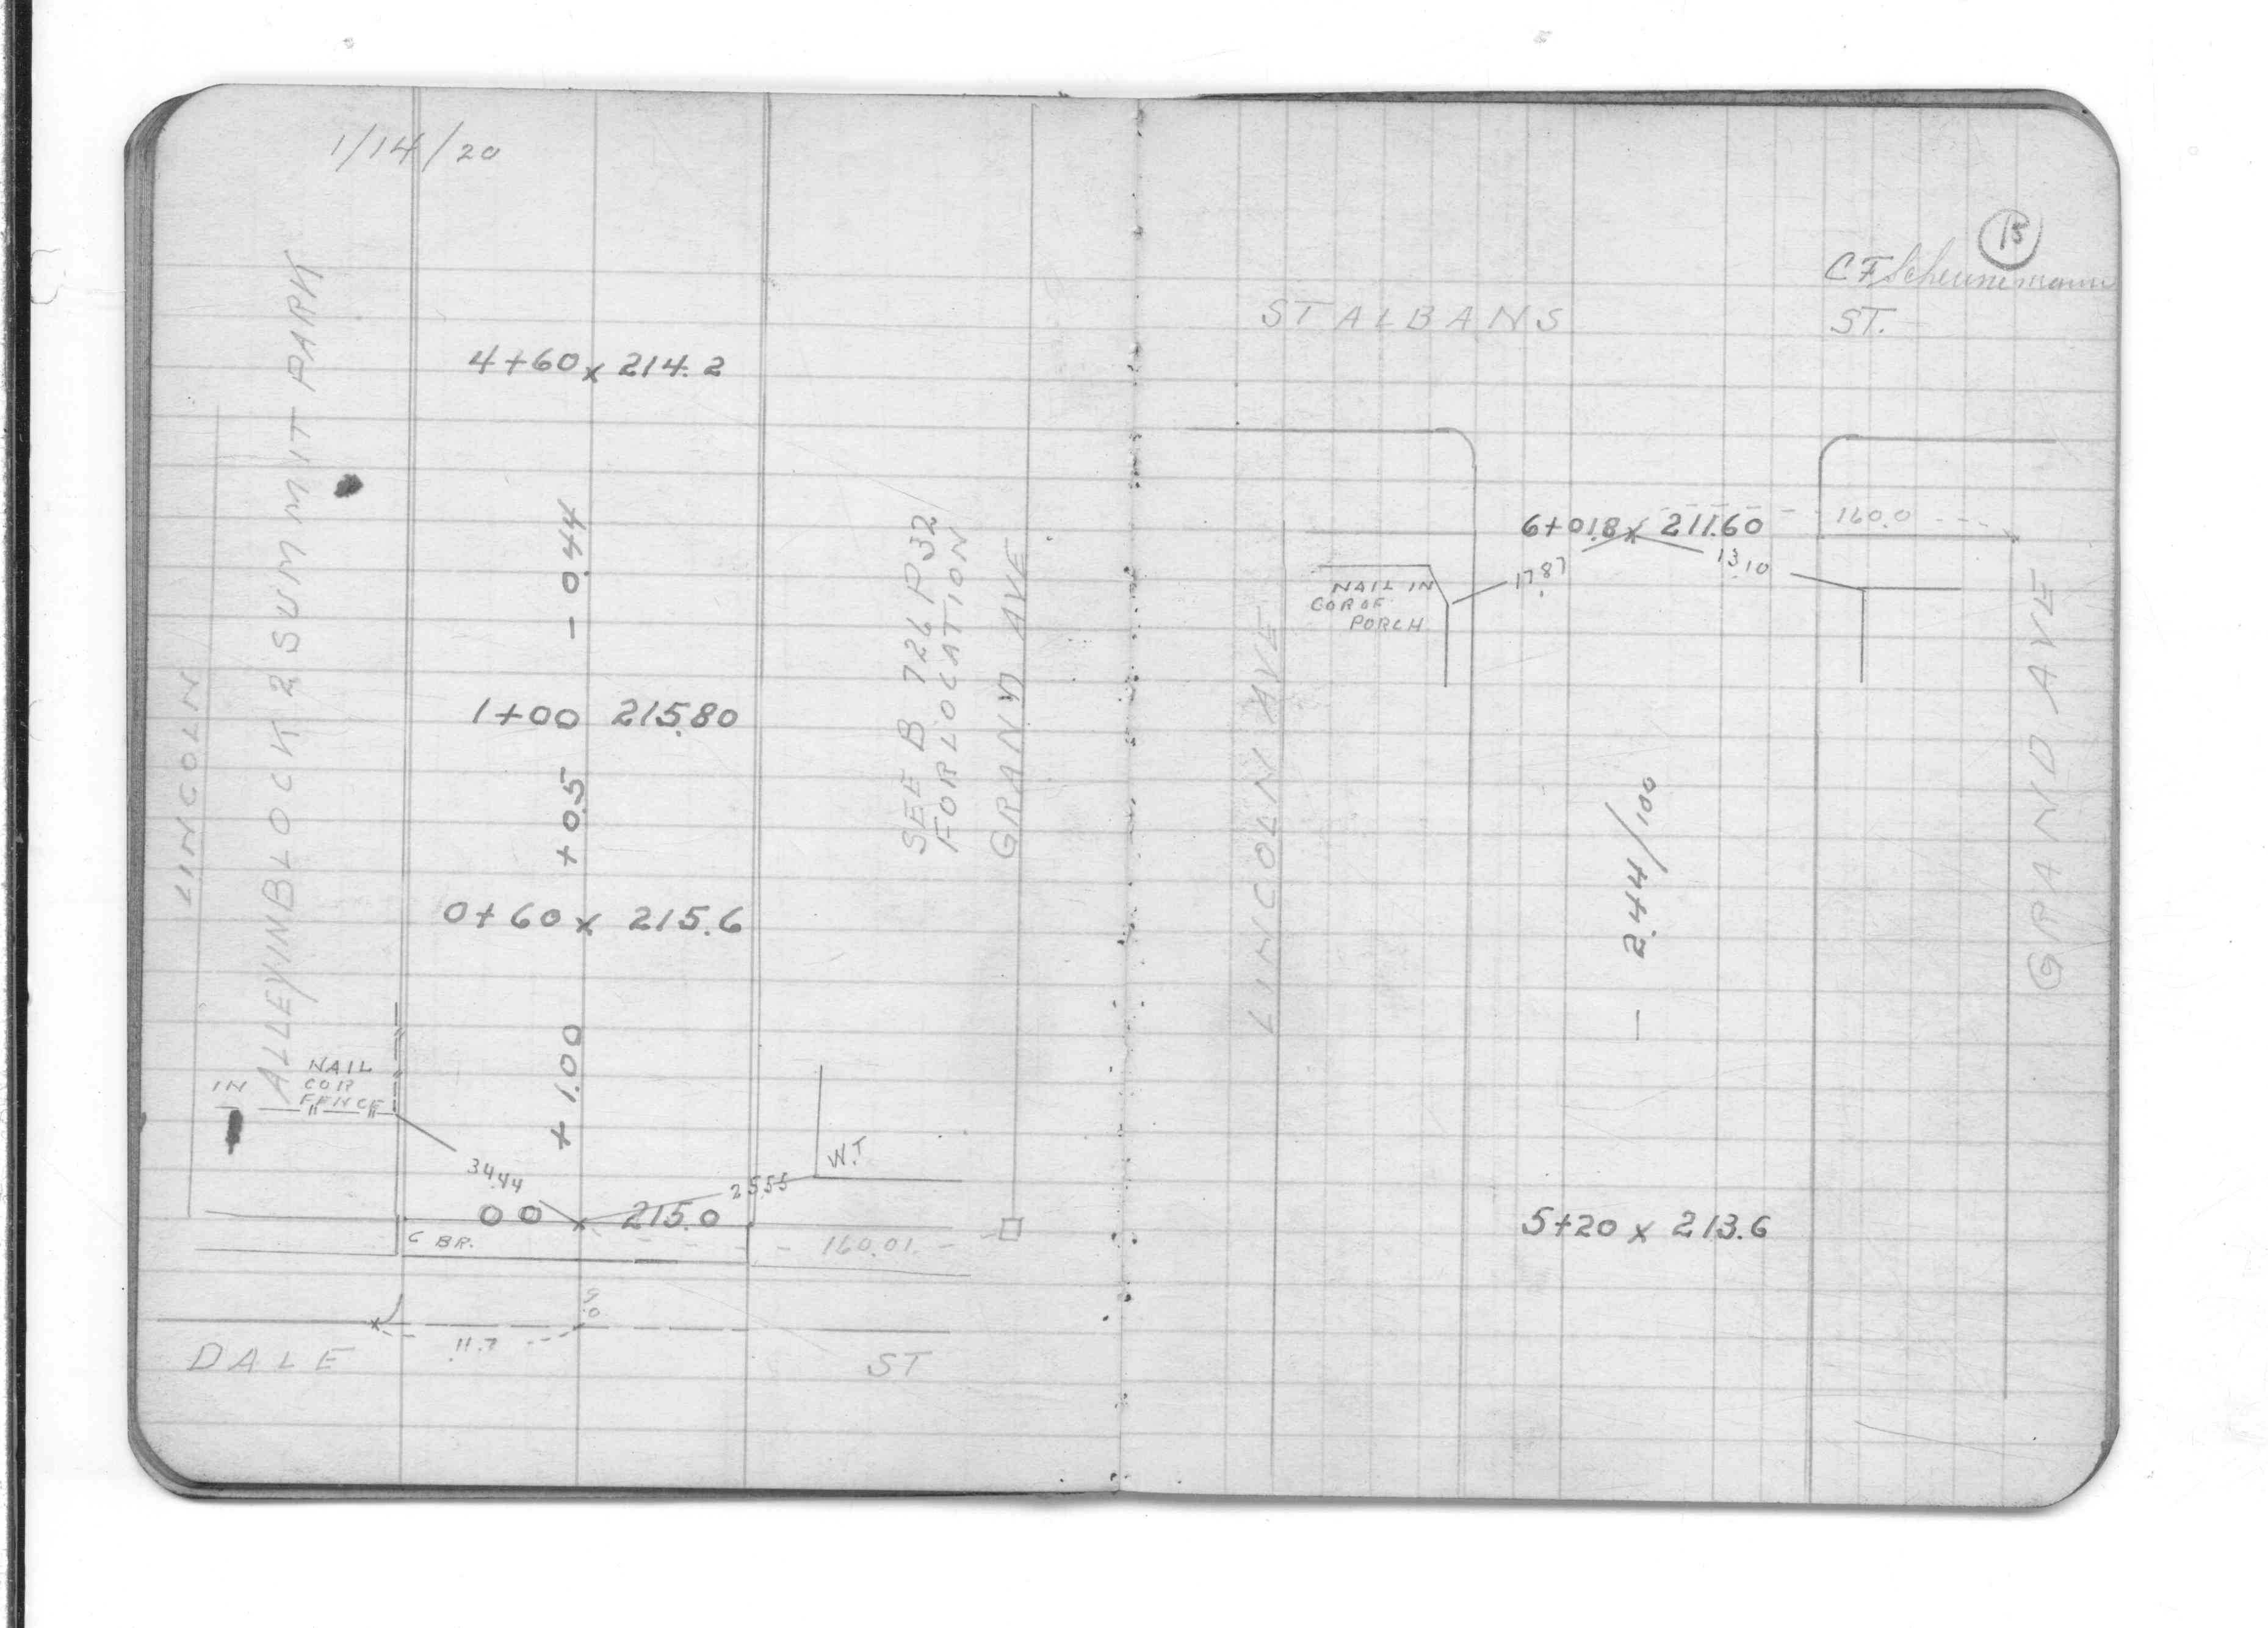 1/14/20
4+60 x 214.2
- 0.44
1+00 215.80
+ 0.5
0+60 x 215.6
+ 1.00
00 x 215.0
34.44
25.55
W.T
C BR.
160.01
5.0
11.7
DALE ST
LINCOLN
ALLEY IN BLOCK 2 SUMMIT PARK
IN NAIL
COR
FENCE
SEE B 726 P32
FOR LOCATION
GRAND AVE
C F Scheunemann
ST ALBANS ST.
6+01.8 x 211.60
160.0
17.87
13.10
NAIL IN
COR OF
PORCH
LINCOLN AVE
- 2.44/100
GRAND AVE
5+20 x 213.6